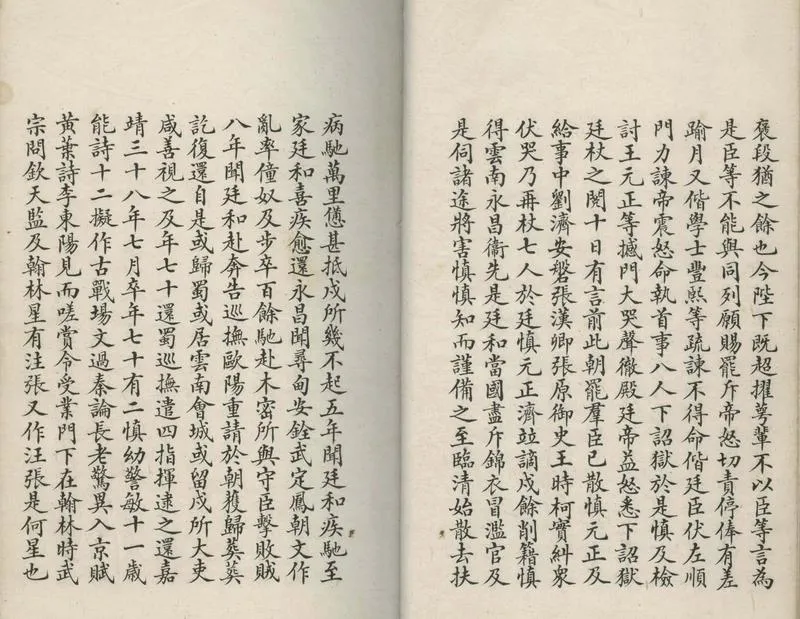 襃段猶之餘也今陛下既超擢萼輩不以臣等言為
是臣等不能與同列願賜罷斥帝怒切責停俸有差
踰月又偕學士豐熙等疏諫不得命偕廷臣伏左順
門力諫帝震怒命執首事八人下詔獄於是慎及檢
討王元正等撼門大哭聲徹殿廷帝益怒悉下詔獄
廷杖之閱十日有言前此朝罷羣臣已散慎元正及
給事中劉濟安磐張漢卿張原御史王時柯實糾衆
伏哭乃再杖七人於廷慎元正濟竝謫戍餘削籍慎
得雲南永昌衞先是廷和當國盡斥錦衣冒濫官及
是伺諸途將害慎慎知而謹備之至臨清始散去扶
病馳萬里憊甚抵戍所幾不起五年聞廷和疾馳至
家廷和喜疾愈還永昌聞尋甸安銓武定鳳朝文作
亂率僮奴及步卒百餘馳赴木密所與守臣擊敗賊
八年聞廷和訃奔告巡撫歐陽重請於朝獲歸葬葬
訖復還自是或歸蜀或居雲南會城或留戍所大吏
咸善視之及年七十還蜀巡撫遣四指揮逮之還嘉
靖三十八年七月卒年七十有二慎幼警敏十一歲
能詩十二擬作古戰場文過秦論長老驚異入京賦
黃葉詩李東陽見而嗟賞令受業門下在翰林時武
宗問欽天監及翰林星有注張又作汪張是何星也